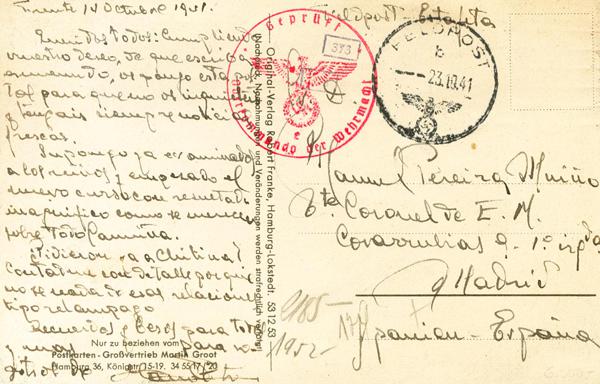 Frente 14 Octubre 1941.
Queridos todos: Cumpliendo
vuestro deseo, de que escriba
os pongo esta pos
tal para que no os inquieteis
y tengais siempre noticias
frescas.
Supongo ya examinados
a los chicos y empezado el
nuevo curso con resultado
magnifico como se merecen
sobre todo
contadme con detalle porque
no se nada de esas relaciones
tipo relampago
Recuerdos y besos para todos
y para
Nur zu beziehen vom
Postkarten - Großvertrieb Martin Groot
Hamburg 36, Königstr. 15-19. 34 55 17 / 20
Original-Verlag Robert Franke, Hamburg-Lokstedt. 53 12 53
(Nachdruck, Nachahmungen und Veränderungen werden strafrechtlich verfolgt)
Geprüft
373
e
der Wehrmacht
Feldpost - Estafeta
FELDPOST
b
23.10.41
Manuel Pereira Muiño
Tte. Coronel de E. M.
Covarrubias 9 - 1º izqda
Madrid
Spanien - España
1952-